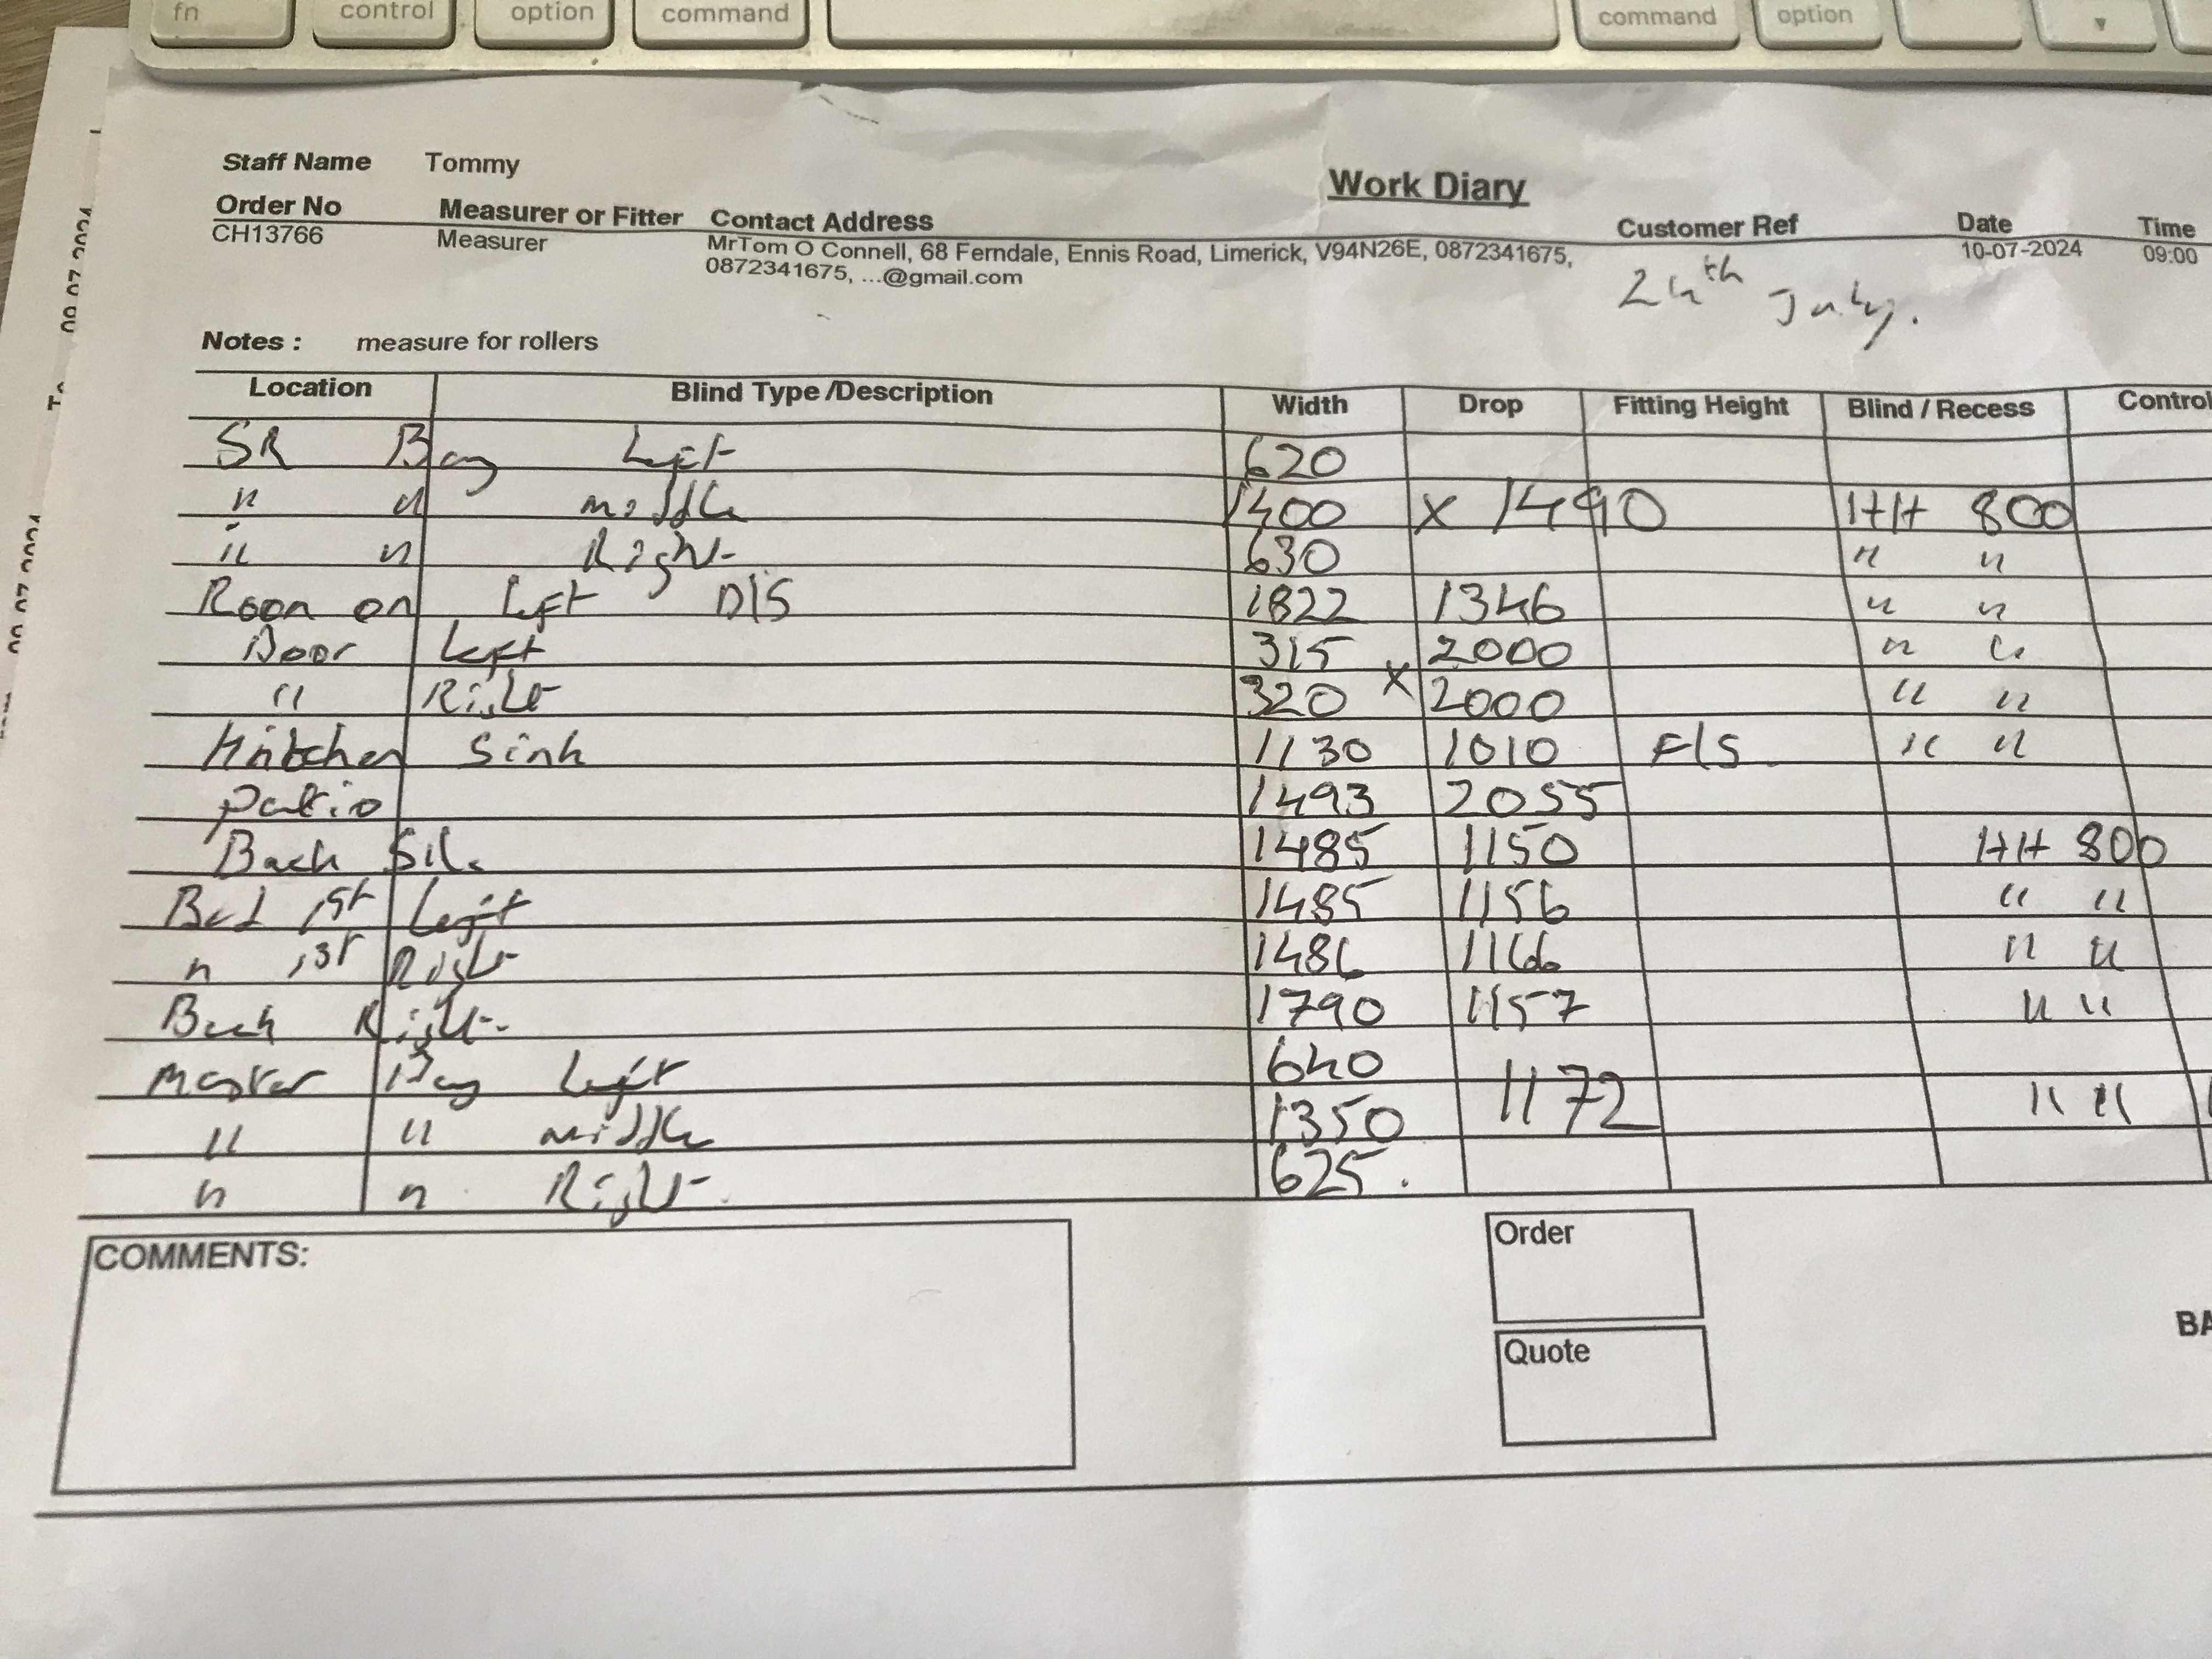 fn control option command command option
Staff Name Tommy
Work Diary
Order No Measurer or Fitter Contact Address Customer Ref Date Time
CH13766 Measurer MrTom O Connell, 68 Ferndale, Ennis Road, Limerick, V94N26E, 0872341675, 10-07-2024 09:00
0872341675, ...@gmail.com
24th July.
Notes : measure for rollers
Location Blind Type /Description Width Drop Fitting Height Blind / Recess Control
SR Bay Left 620
" " middle 1400 x 1490 HH 800
" " Right 630 " "
Room on Left D/S 1822 1346 " "
Door Left 315 2000 " "
" Right 320 x 2000 " "
Kitchen Sink 1130 1010 F/S " "
Patio 1493 2055
Back 1485 1150 HH 800
Bed 1st Left 1485 1156 " "
" 1st Right 1486 1166 " "
Back Right 1790 1157 " "
Master Bay Left 640
" " middle 1350 1172 " "
" " Right 625.
COMMENTS:
Order
Quote
BA